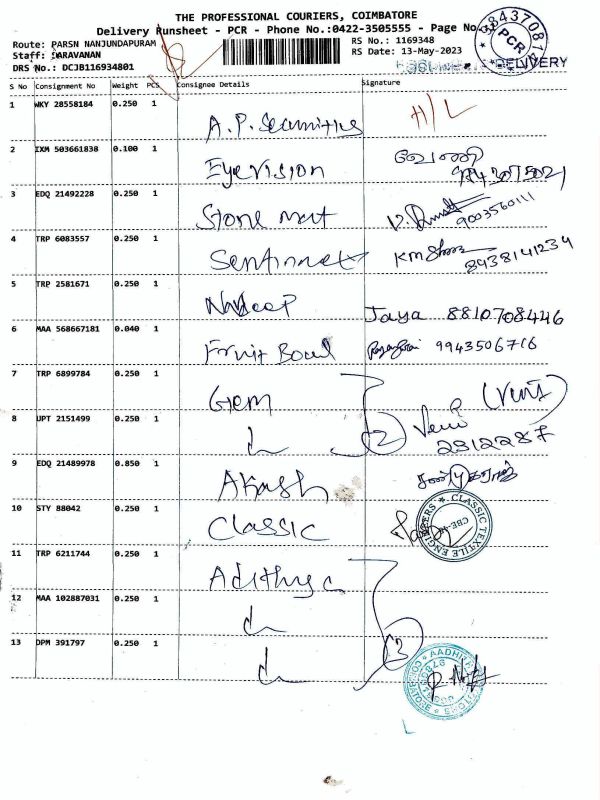 THE PROFESSIONAL COURIERS, COIMBATORE
Delivery Runsheet - PCR - Phone No.:0422-3505555 - Page No.
Route: PARSN NANJUNDAPURAM
RS No.: 1169348
Staff: SARAVANAN
RS Date: 13-May-2023
DRS No.: DCJB116934801
DELIVERY
PCR
S No Consignment No Weight PCS Consignee Details Signature
1 WKY 28558184 0.250 1 A.P. Securities H/L
2 IXM 503661838 0.100 1 Eye Vision
3 EDQ 21492228 0.250 1 Stone mart 9003560111
4 TRP 6083557 0.250 1 8938141234
5 TRP 2581671 0.250 1 Nadeep Jaya 8810708446
6 MAA 568667181 0.040 1 Fruit Bowl 9943506716
7 TRP 6899784 0.250 1 Gem
8 UPT 2151499 0.250 1 2 2312287
9 EDQ 21489978 0.850 1 Akash
10 STY 88042 0.250 1 Classic
CLASSIC TEXTILE ENGINEERS
CBE
11 TRP 6211744 0.250 1 Adithya
12 MAA 102887031 0.250 1
13 DPM 391797 0.250 1 3